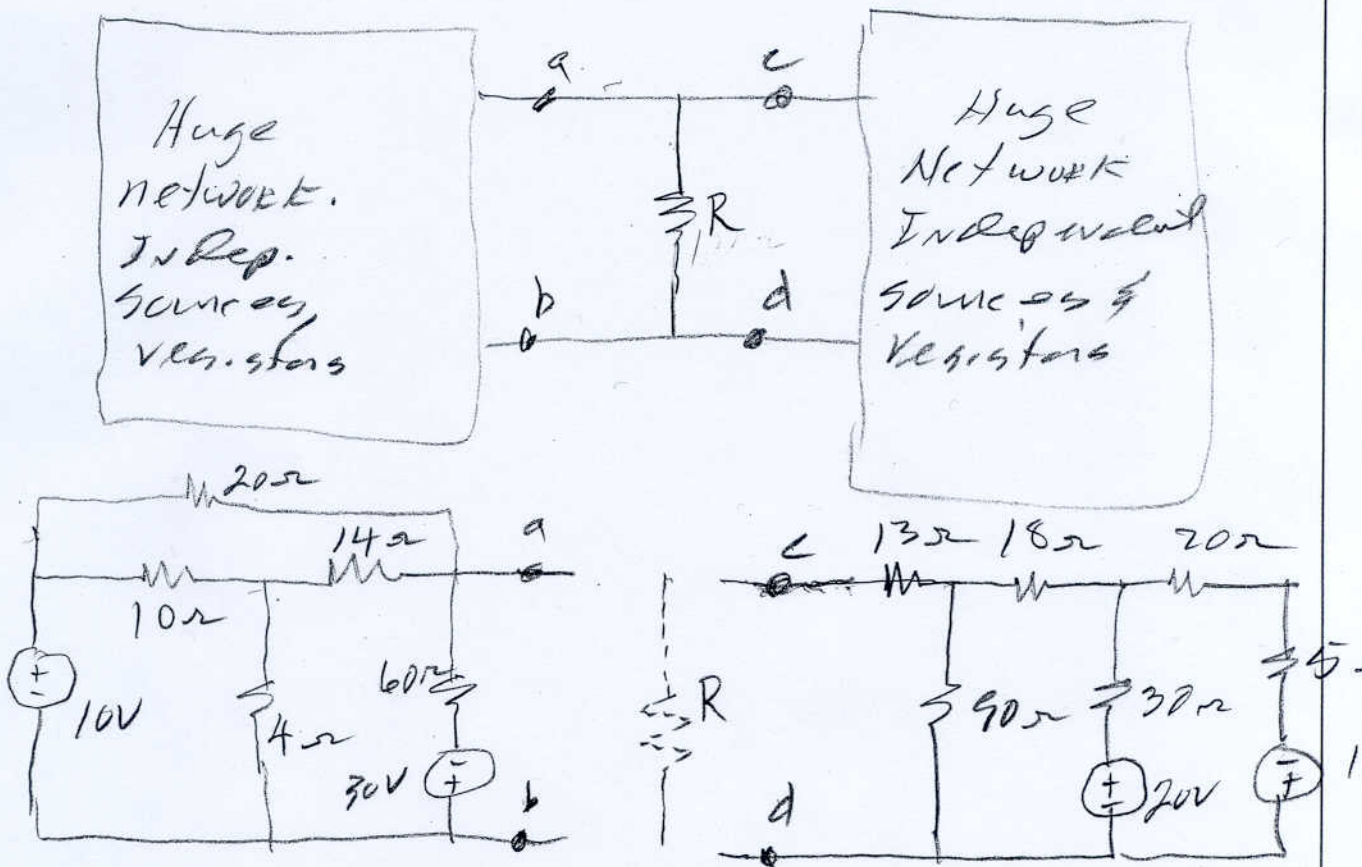 Huge
network.
Indep.
sources,
resistors
a
b
R
c
d
Huge
Network
Independent
sources &
Resistors
20Ω
14Ω
10Ω
10V
4Ω
60Ω
30V
+
-
a
b
R
c
d
13Ω
18Ω
20Ω
90Ω
30Ω
20V
5
1